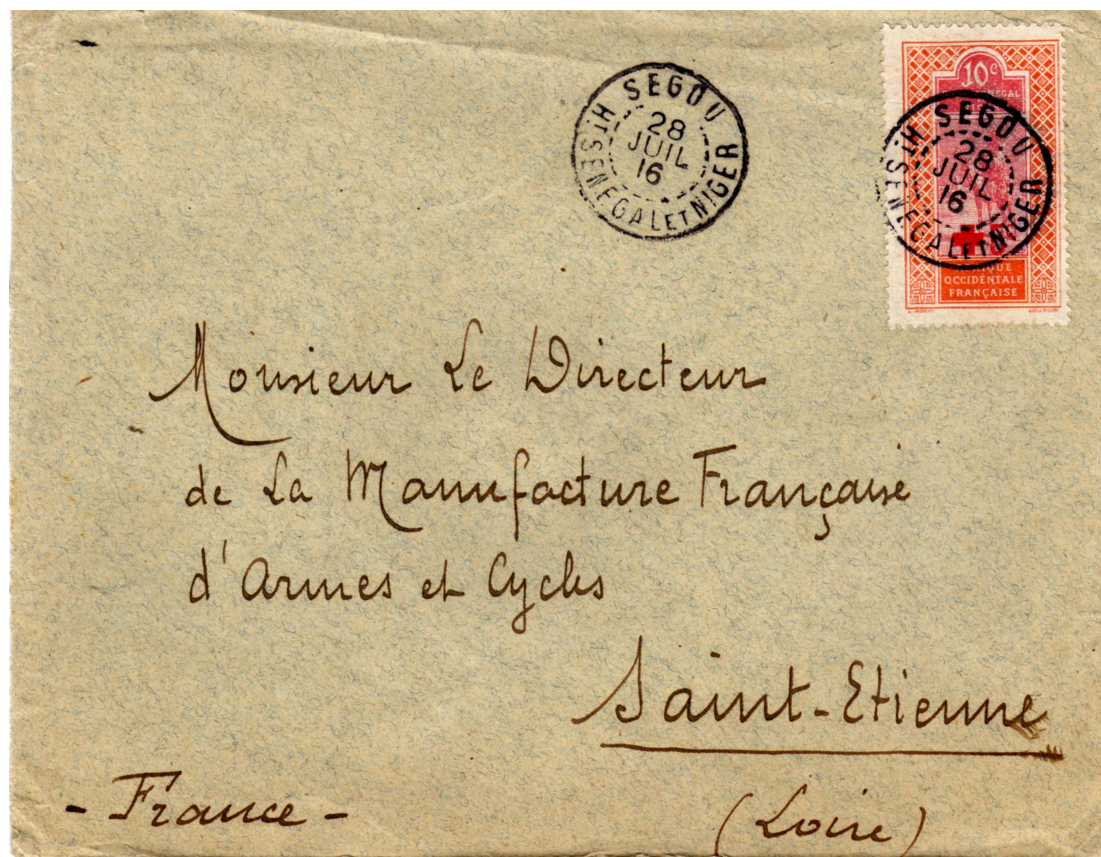 SEGOU
28
JUIL
16
Ht SENEGAL ET NIGER
10c
SEGOU
28
JUIL
16
Ht SENEGAL ET NIGER
OCCIDENTALE
FRANÇAISE
Monsieur Le Directeur
de La Manufacture Française
d'Armes et Cycles
Saint-Etienne
- France -
(Loire)